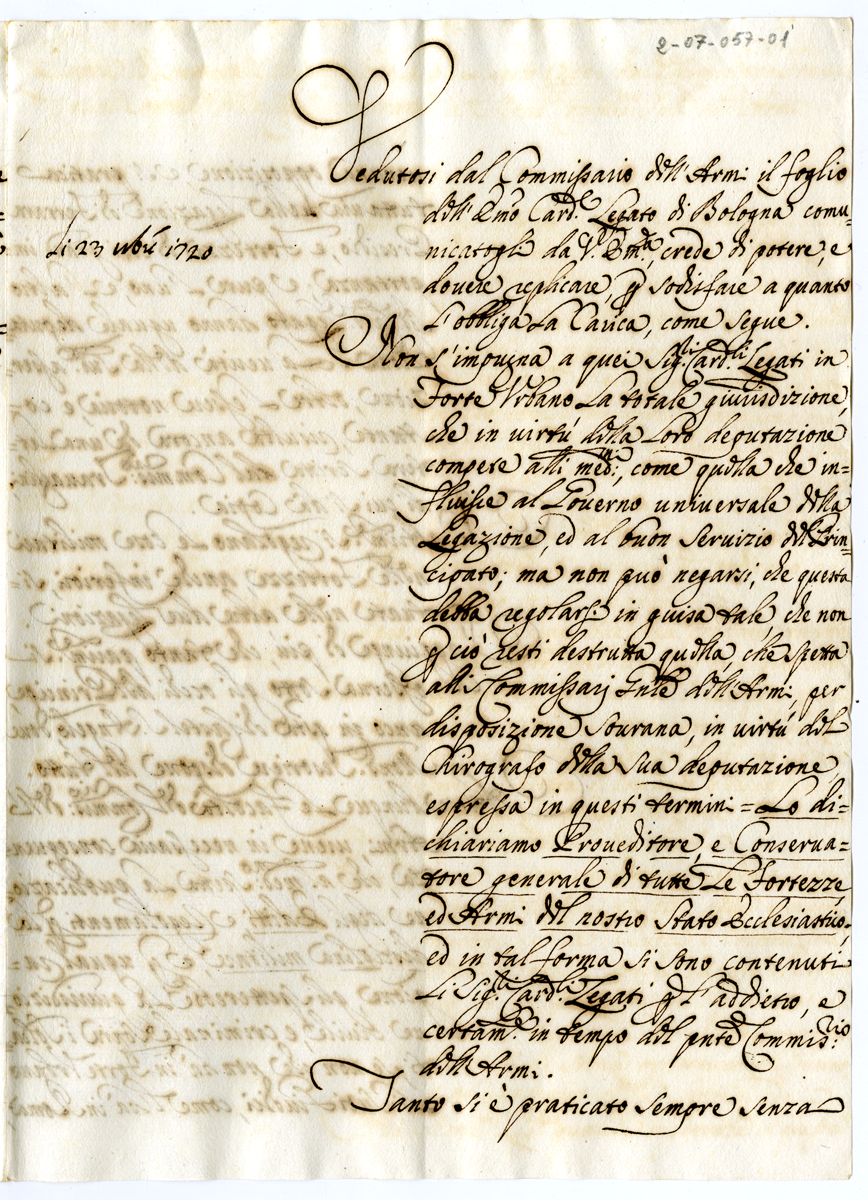 2-07-057-01
Vedutosi dal Commissario dell'Armi il foglio
dell'Emo Card.e Legato di Bologna comu-
Li 23 9bre 1720
nicatogli da V. Em.za, crede di potere, e
dovere replicare, p sodisfare a quanto
l'obbliga la Carica, come segue.
Non s'impugna a quei Sig.li Card.li Legati in
Forte Urbano la totale giurisdizione,
che in virtù della Loro deputazione
compete alli med.mi, come quella che in=
fluisce al Governo universale della
Legazione, ed al buon servizio del Prin=
cipato; ma non può negarsi, che questa
debba regolarsi in guisa tale, che non
p ciò resti destrutta quella, che spetta
alli Commissarj Gnle dell'Armi, per
disposizione Sovrana, in virtù del
Chirografo della sua deputazione,
espressa in questi termini = Lo di=
chiariamo Proveditore, e Conserva=
tore generale di tutte Le Fortezze,
ed Armi del nostro Stato Ecclesiastico,
ed in tal forma si sono contenuti
li Sig.li Card.li Legati p l'addietro, e
certam.e in tempo del pnte Commis.rio
dell'Armi.
Tanto si è praticato sempre senza